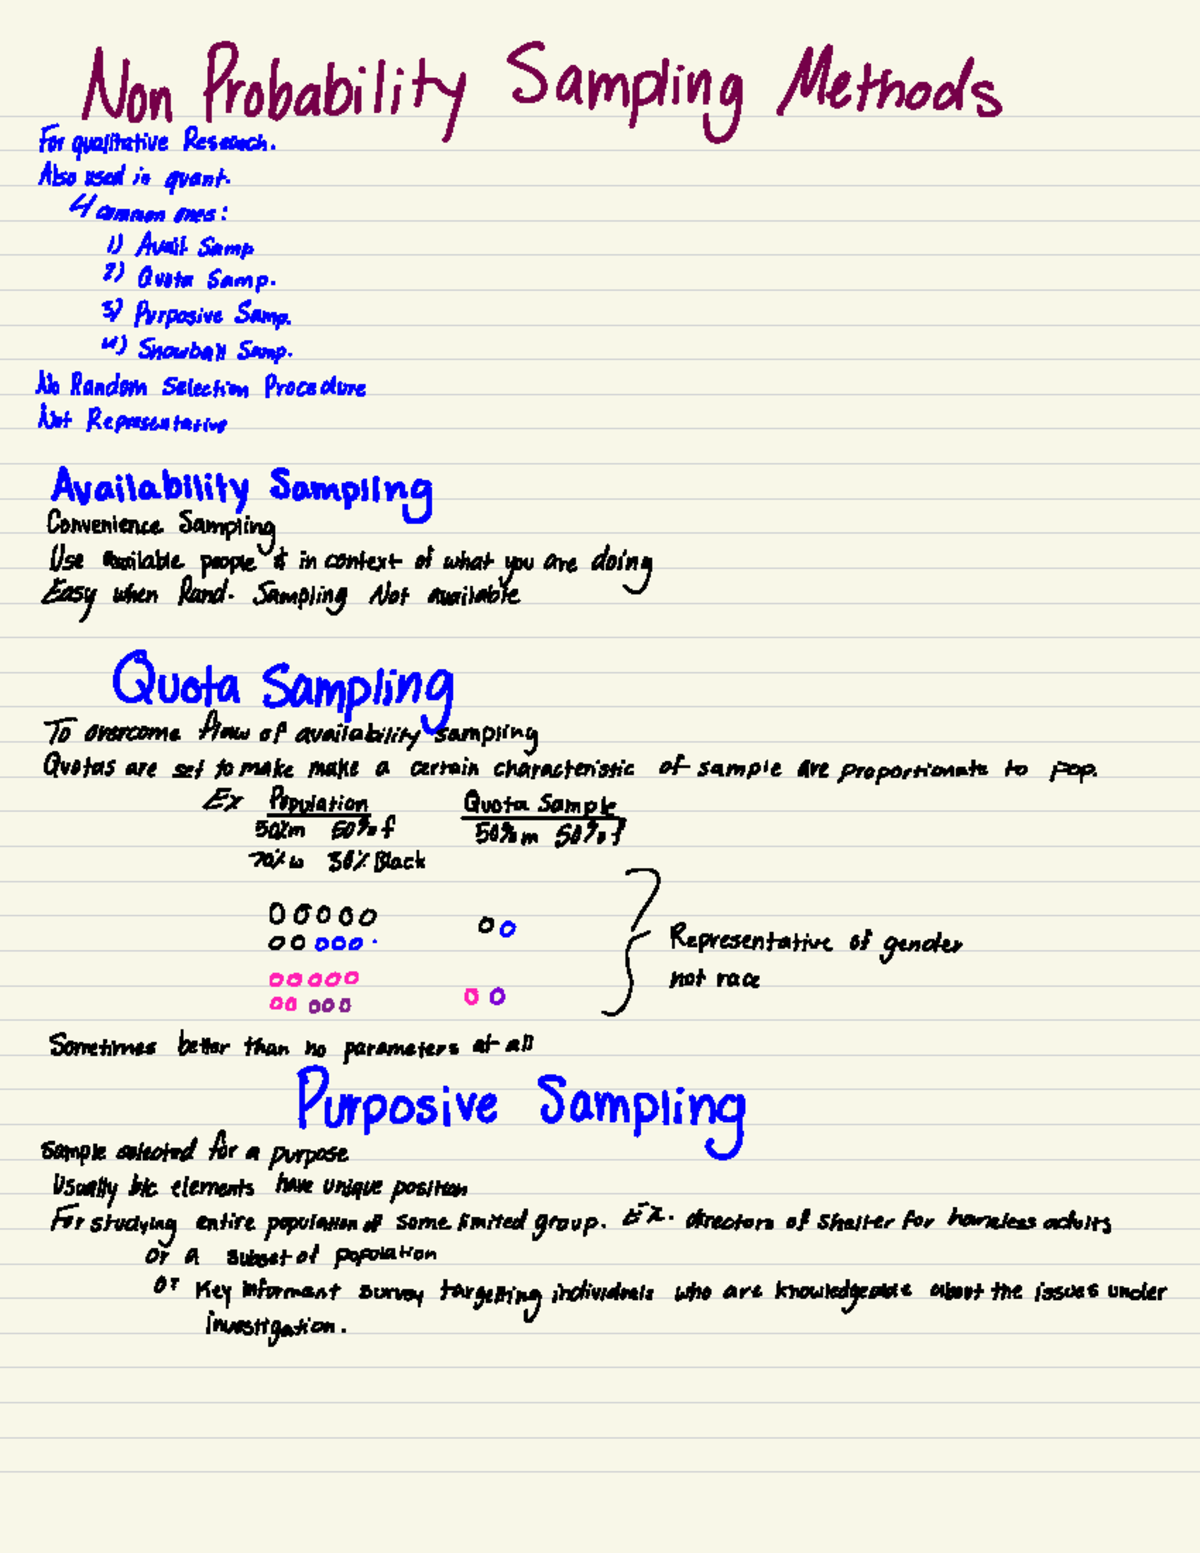 Non Probability Sampling Methods
For qualitative Research.
Also used in quant.
4 common ones:
1) Avail Samp
2) Quota Samp.
3) Purposive Samp.
4) Snowball Samp.
No Random Selection Procedure
Not Representative
Availability Sampling
Convenience Sampling
Use available people & in context of what you are doing
Easy when Rand. Sampling Not available
Quota Sampling
To overcome flaw of availability sampling
Quotas are set to make make a certain characteristic of sample are proportionate to pop.
Ex Population Quota Sample
50%m 50%f 50%m 50%f
70%w 30% Black
Representative of gender
not race
Sometimes better than no parameters at all
Purposive Sampling
Sample selected for a purpose
Usually b/c elements have unique position
For studying entire population of some limited group. Ex. directors of shelter for homeless adults
or a subset of population
or Key informant survey targetting individuals who are knowledgeable about the issues under
investigation.